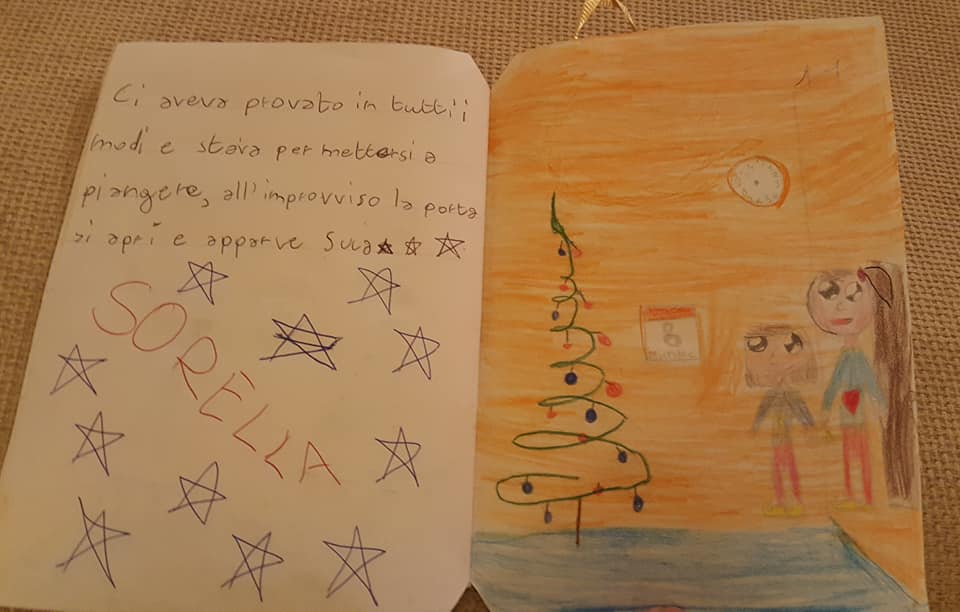 Ci aveva provato in tutti i
modi e stava per mettersi a
piangere, all'improvviso la porta
si aprì e apparve Sua
SORELLA
8